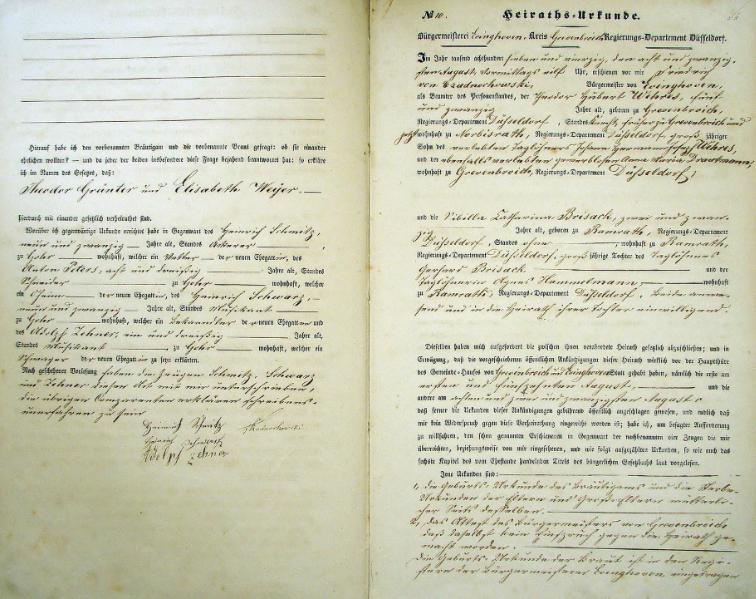 Hierauf habe ich den vorbenannten Bräutigam und die vorbenannte Braut gefragt: ob sie einander
ehelichen wollten? — und da jeder der beiden insbesondere diese Frage bejahend beantwortet hat: so erkläre
ich im Namen des Gesetzes, daß:
Theodor Gränter und Elisabeth Weyer. —
hierdurch mit einander gesetzlich verheirathet sind.
Worüber ich gegenwärtige Urkunde errichtet habe in Gegenwart des Heinrich Schmitz,
neun und zwanzig Jahre alt, Standes Ackerer
zu Gohr wohnhaft, welcher ein Vetter der neuen Ehegattin, des
Anton Peters, acht und dreißig Jahre alt, Standes
Schneider zu Gohr wohnhaft, welcher
ein Oheim der neuen Ehegattin, des Heinrich Schwarz,
neun und zwanzig Jahre alt, Standes Musikant
zu Gohr wohnhaft, welcher ein Bekannter der neuen Ehegatten und
des Adolph Zehner, ein und dreißig Jahre alt,
Standes Musikant zu Gohr wohnhaft, welcher ein
Schwager der neuen Ehegattin zu sein erklärten.
Nach geschehener Vorlesung haben die Zeugen Schmitz, Schwarz
und Zehner diesen Akt mit mir unterschrieben,
die übrigen Comparenten erklärten schreibens-
unerfahren zu sein
Heinrich Schmitz
Heinrich
Adolph Zehner
№ 10. Heiraths-Urkunde.
Bürgermeisterei Evinghoven Kreis Grevenbroich Regierungs-Departement Düsseldorf.
Im Jahr tausend achthundert sieben und vierzig, den acht und zwanzig-
sten August, Vormittags eilf Uhr, erschienen vor mir Friedrich
von Bürgermeister von Evinghoven,
als Beamter des Personenstandes, der Theodor Hubert Wehres, fünf
und zwanzig Jahre alt, geboren zu Grevenbroich,
Regierungs-Departement Düsseldorf, Standes Knecht, früher zu Grevenbroich und
jetzt wohnhaft zu Norbisrath, Regierungs-Departement Düsseldorf, groß jähriger
Sohn des verlebten Taglöhners Wehres,
und der ebenfalls verlebten gewerblosen Anna Maria
wohnhaft zu Grevenbroich, Regierungs-Departement Düsseldorf;
und die Sibilla Catharina Brisack, zwei und zwan-
zig Jahre alt, geboren zu Ramrath, Regierungs-Departement
Düsseldorf, Standes ohne, wohnhaft zu Ramrath,
Regierungs-Departement Düsseldorf, groß jährige Tochter des Taglöhners
Gerhard Brisack und der
Taglöhnerin Agnes Hammelmann,
zu Ramrath, Regierungs-Departement Düsseldorf, beide anwe-
send und in die Heirath ihrer Tochter einwilligend.
Dieselben haben mich aufgefordert die zwischen ihnen verabredete Heirath gesetzlich abzuschließen; und in
Erwägung, daß die vorgeschriebenen öffentlichen Ankündigungen dieser Heirath wirklich vor der Hauptthüre
des Gemeinde-Hauses von Grevenbroich und Evinghoven Statt gehabt haben, nämlich die erste am
ersten und fünfzehnten August, und die
andere am achten und zwei und zwanzigsten August c.
daß ferner die Urkunden dieser Ankündigungen gebührend öffentlich angeschlagen gewesen, und endlich daß
mir kein Widerspruch gegen diese Verheirathung eingereicht worden ist; habe ich, um besagter Aufforderung
zu willfahren, den schon genannten Erschienenen in Gegenwart der nachbenannten vier Zeugen die mir
überreichten, beziehungsweise von mir eingesehenen, und wie folgt aufgezählten Urkunden, so wie auch das
sechste Kapitel des vom Ehestande handelnden Titels des bürgerlichen Gesetzbuchs laut vorgelesen.
Jene Urkunden sind:
1, die Geburts-Urkunde des Bräutigams und die Sterbe-
Urkunden der Eltern und Großeltern mütterli-
cher Seits desselben.
2, das Attest des Bürgermeisters von Grevenbroich
daß daselbst kein Einspruch gegen die Heirath ge-
macht worden.
die Geburts-Urkunde der Braut ist in den Regi-
stern der Bürgermeisterei Evinghoven eingetragen